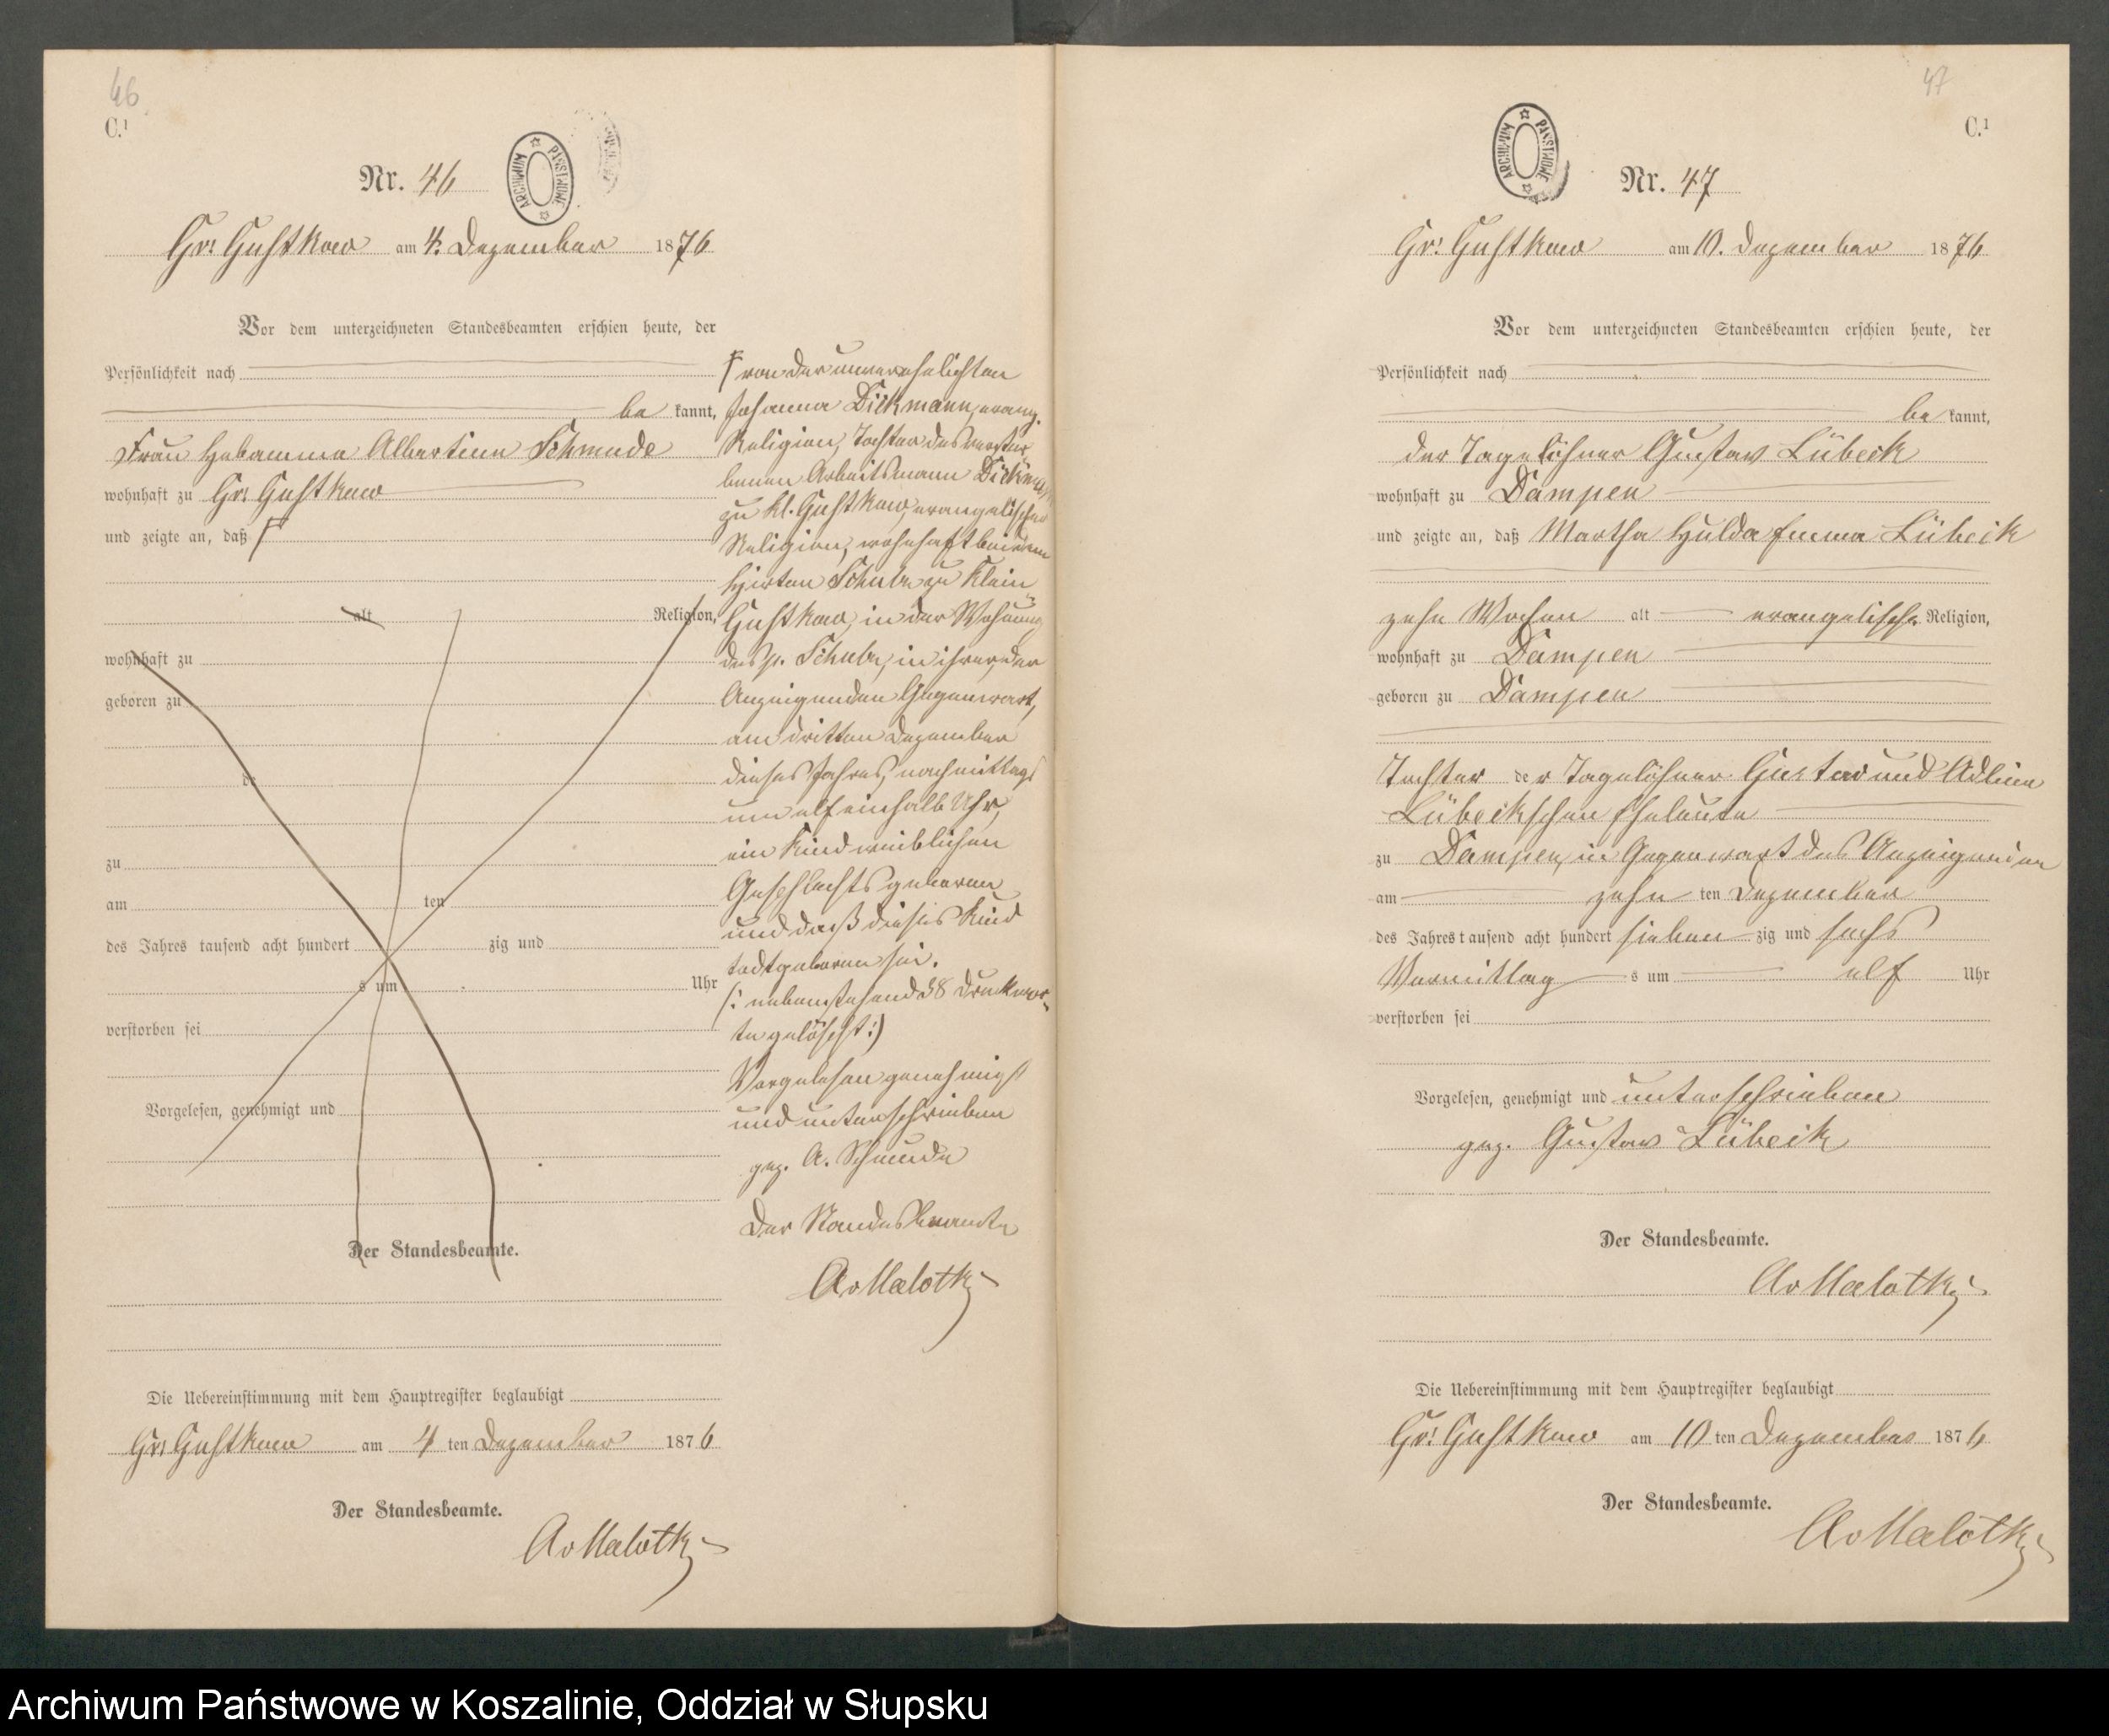 46
C.¹
ARCHIWUM PAŃSTWOWE
Nr. 46
Gr: Gustkow am 4. Dezember 1876
Vor dem unterzeichneten Standesbeamten erschien heute, der
Persönlichkeit nach
be kannt,
Frau Hebamme Albertine Schmude
wohnhaft zu Gr: Gustkow
und zeigte an, daß
alt Religion,
wohnhaft zu
geboren zu
de
zu
am ten
des Jahres tausend acht hundert zig und
s um Uhr
verstorben sei
Vorgelesen, genehmigt und
Der Standesbeamte.
von der unverehelichten
Johanna Dickmann, evang.
Religion, Tochter des verstor-
benen Arbeitsmann Dickmann
zu Kl. Gustkow, evangelischer
Religion, wohnhaft bei dem
Hirten Schube zu Klein
Gustkow, in der Wohnung
des p. Schube, in ihrer, der
Anzeigenden Gegenwart,
am dritten Dezember
dieses Jahres, nachmittags
um elfeinhalb Uhr,
ein Kind weiblichen
Geschlechts geboren
und daß dieses Kind
todtgeboren sei.
(: nebenstehend 38 Druckwor-
te gelöscht :)
Vorgelesen genehmigt
und unterschrieben
gez. A. Schmude
Der Standesbeamte
AvMalotky
Die Uebereinstimmung mit dem Hauptregister beglaubigt
Gr: Gustkow am 4 ten Dezember 1876
Der Standesbeamte.
AvMalotky
47
C.¹
ARCHIWUM PAŃSTWOWE
Nr. 47
Gr: Gustkow am 10. Dezember 1876
Vor dem unterzeichneten Standesbeamten erschien heute, der
Persönlichkeit nach
be kannt,
der Tagelöhner Gustav Lübeck
wohnhaft zu Dampen
und zeigte an, daß Martha Hulda Emma Lübeck
zehn Wochen alt evangelischer Religion,
wohnhaft zu Dampen
geboren zu Dampen
Tochter der Tagelöhner Gustav und Adline
Lübeckschen Eheleute
zu Dampen, in Gegenwart des Anzeigenden
am zehn ten Dezember
des Jahres tausend acht hundert sieben zig und sechs
Vormittag s um elf Uhr
verstorben sei
Vorgelesen, genehmigt und unterschrieben
gez. Gustav Lübeck
Der Standesbeamte.
AvMalotky
Die Uebereinstimmung mit dem Hauptregister beglaubigt
Gr: Gustkow am 10 ten Dezember 1876
Der Standesbeamte.
AvMalotky
Archiwum Państwowe w Koszalinie, Oddział w Słupsku